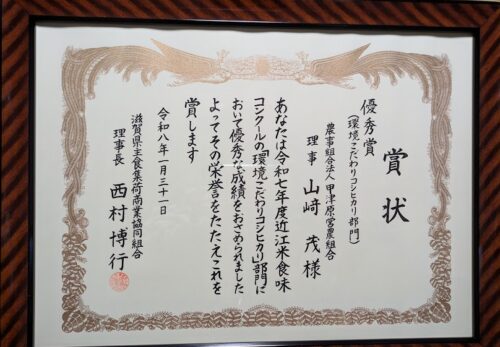 賞状
優秀賞
(環境こだわりコシヒカリ部門)
農事組合法人 甲津原営農組合
理事 山﨑 茂 様
あなたは令和七年度近江米食味
コンクールの「環境こだわりコシヒカリ」部門に
おいて優秀な成績をおさめられました
よってその栄誉をたたえこれを
賞します
令和八年一月三十一日
滋賀県主食集荷商業協同組合
理事長 西村博行